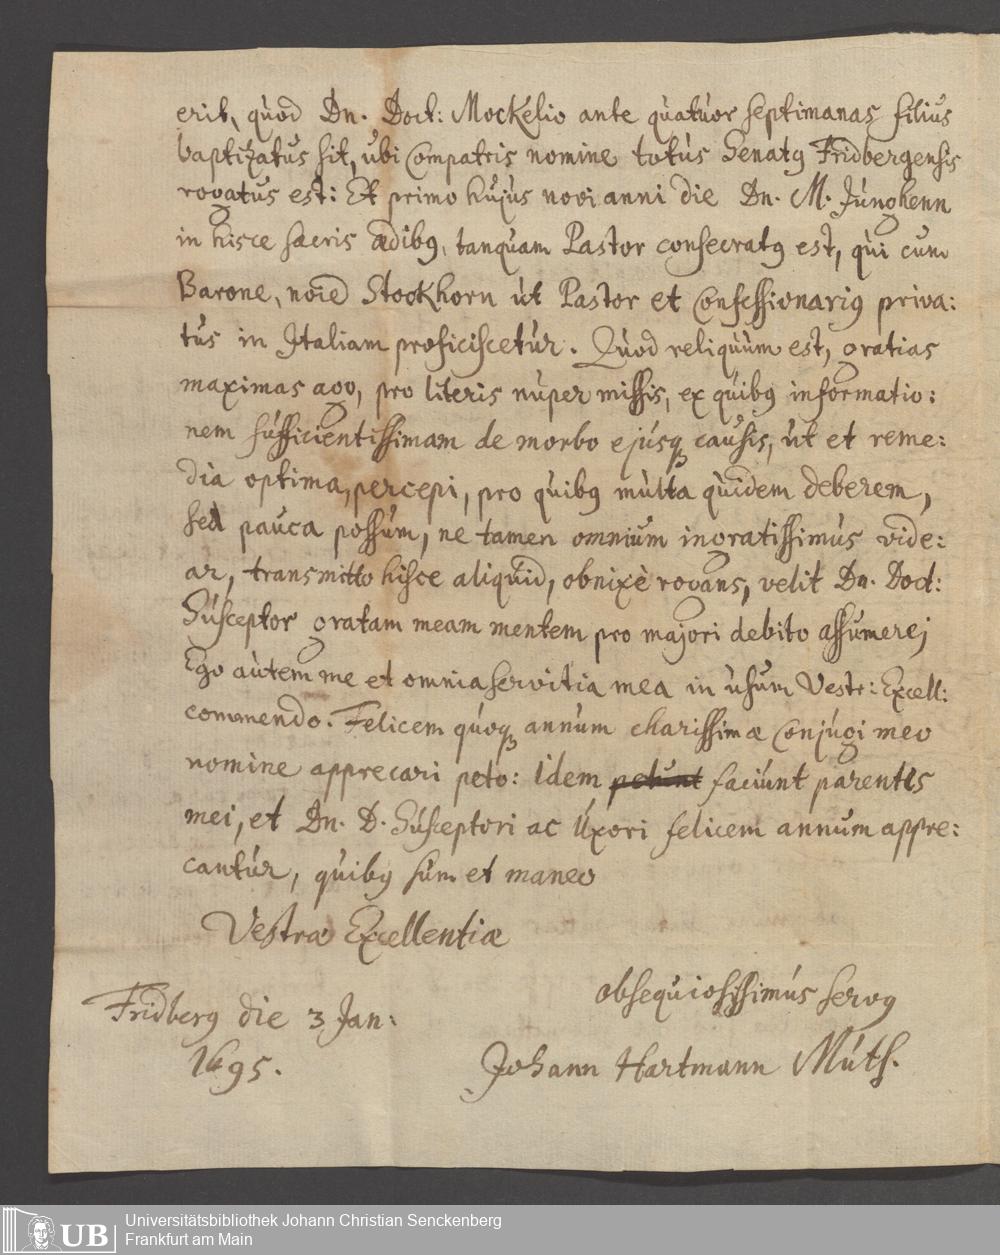 erit, quod Dn. Doct: Mockelio ante quatuor septimanas filius
baptizatus sit, ubi Compatris nomine totus Senatꝰ Fridbergensis
rogatus est: Et primo hujus novi anni die Dn. M. Junghenn
in hisce sacris ædibꝰ, tanquam Pastor consecratꝰ est, qui cum
Barone, noīe Stockhorn ut Pastor et Confessionariꝰ priva:
tus in Italiam proficiscetur. Quod reliquum est, gratias
maximas ago, pro literis nuper missis, ex quibꝰ informatio:
nem sufficientissimam de morbo ejusqꝫ causis, ut et reme:
dia optima, percepi, pro quibꝰ multa quidem deberem,
sed pauca possum, ne tamen omnium ingratissimus vide:
ar, transmitto hisce aliquid, obnixè rogans, velit Dn. Doct:
Susceptor gratam meam mentem pro majori debito assumere;
Ego autem me et omnia servitia mea in usum Vestr: Excell:
commendo. Felicem quoqꝫ annum charissimæ Conjugi meo
nomine apprecari peto: Idem petunt faciunt parentes
mei, et Dn. D. Susceptori ac Uxori felicem annum appre:
cantur, quibꝰ sum et maneo
Vestræ Excellentiæ
obsequiosissimus servꝰ
Fridberg die 3 Jan:
1695.
Johann Hartmann Muth.
UB
Universitätsbibliothek Johann Christian Senckenberg
Frankfurt am Main